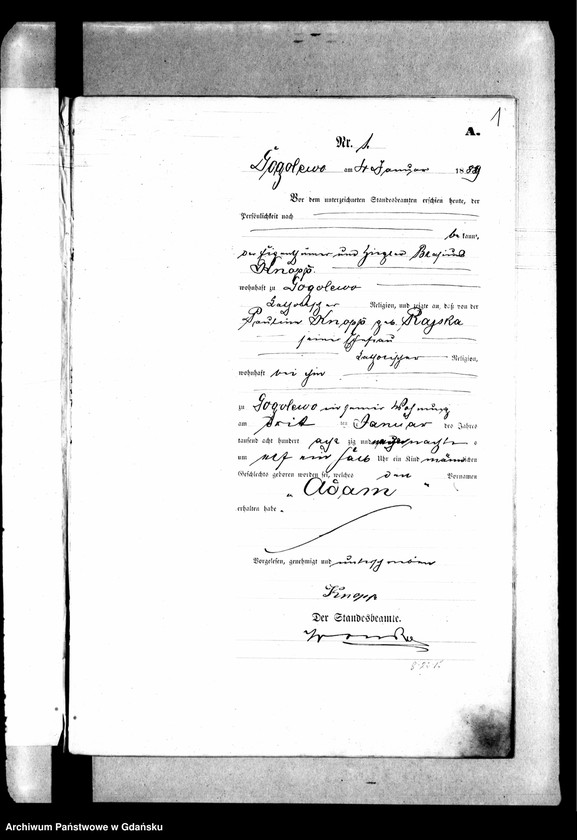 1
A.
Nr. 1.
Gogolewo am 4. Januar 1889
Vor dem unterzeichneten Standesbeamten erschien heute, der
Persönlichkeit nach
bekannt,
der Eigenthümer und Ziegler
Knopp
wohnhaft zu Gogolewo
katholischer Religion, und zeigte an, daß von der
Pauline Knopp geb. Rajska
seine Ehefrau
katholischer Religion,
wohnhaft bei ihm
zu Gogolewo in seiner Wohnung
am ten Januar des Jahres
tausend acht hundert acht zig und
um elf ein halb Uhr ein Kind männlichen
Geschlechts geboren worden sei, welches den Vornamen
"Adam"
erhalten habe.
Vorgelesen, genehmigt und unterschrieben
Knopp
Der Standesbeamte.
Archiwum Państwowe w Gdańsku